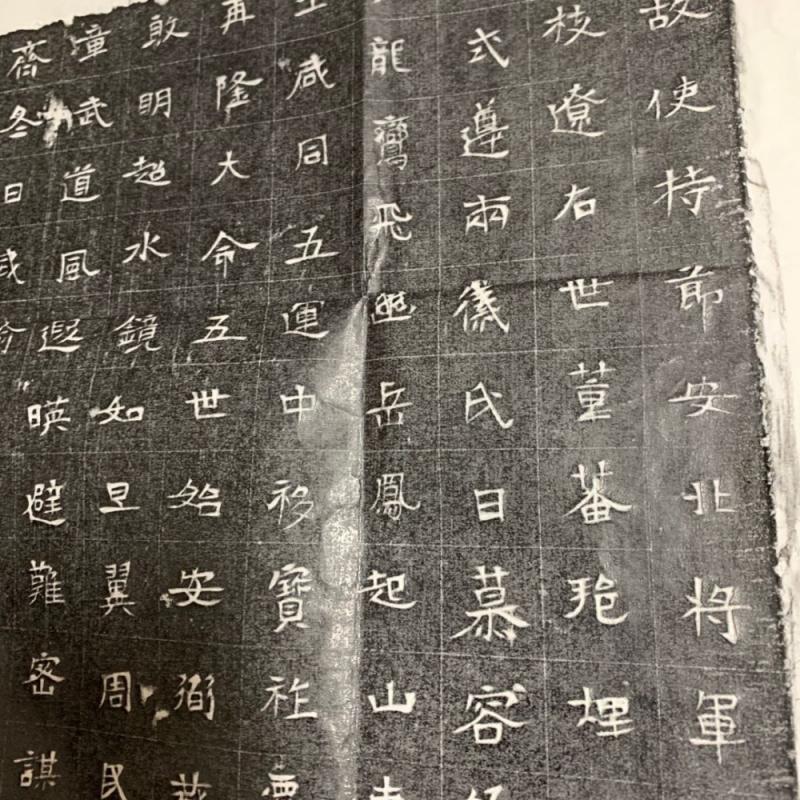 故使持節安北将軍
枝遼右世董蕃埋
式遵兩徽氏日慕容
龍鸞飛岳鳳起山
咸同五運中移寶祚
再隆大命五世始安弼
敢明超水鏡如旦翼周民
童武道風遐暎避難密謀
齊冬日